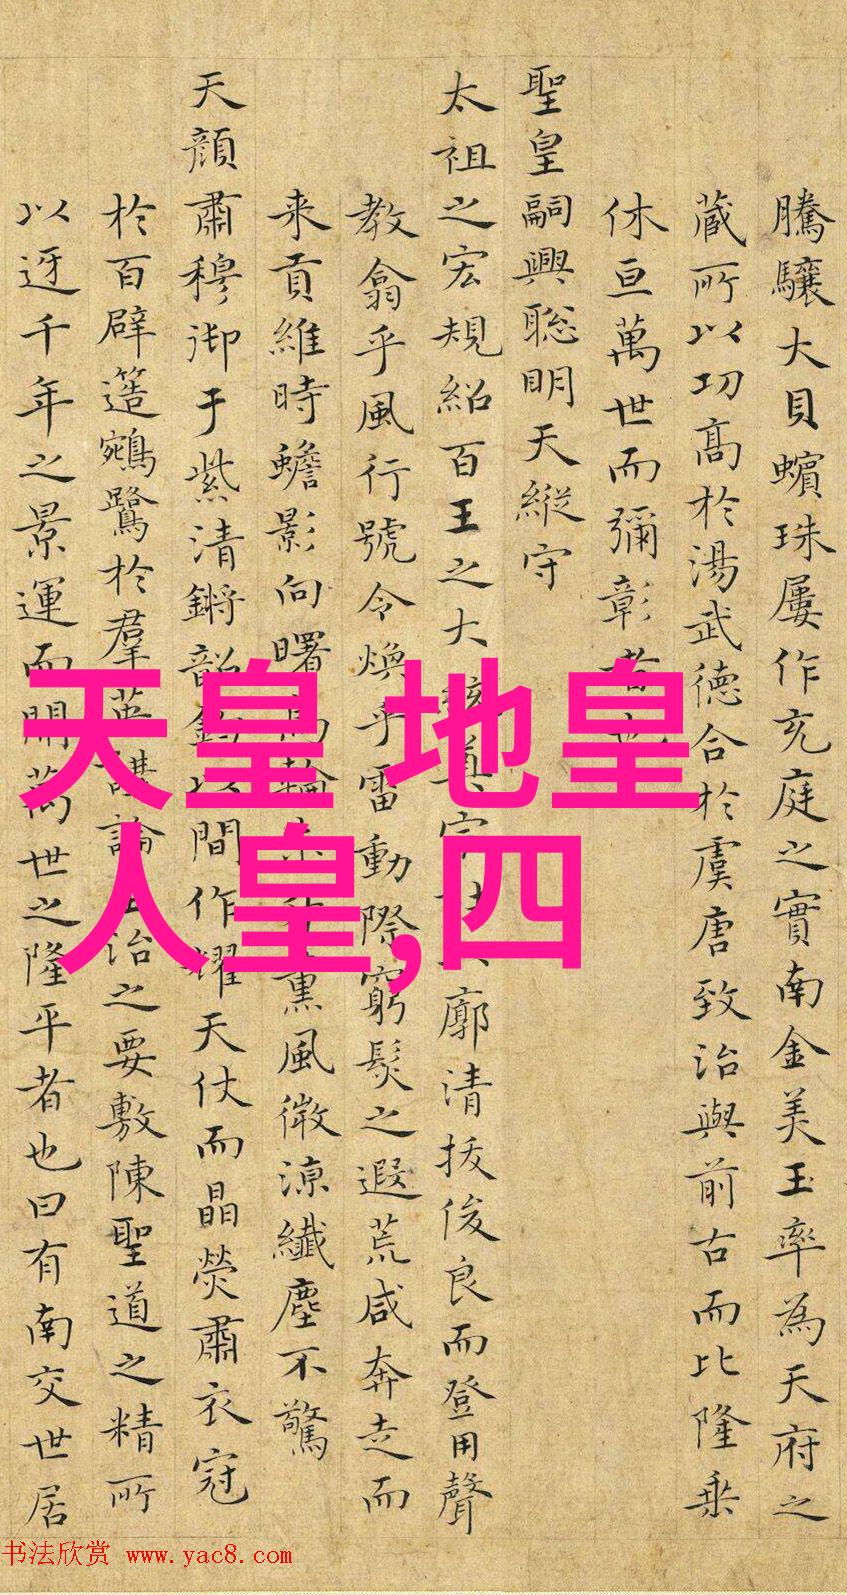 騰驤大貝蠙珠屢作充庭之實南金美玉率為天府之
蔵所以功髙於湯武德合於虞唐致治與前古而比隆乗
休亘萬世而彌彰者也
聖皇嗣興聡明天縦守
太祖之宏規紹百王之大
廓清抜俊良而登用聲
教翕乎風行號令煥乎雷動際窮髮之遐荒咸奔走而
来貢維時蟾影向曙
薫風微涼纖塵不驚
天顔肅穆御于紫清鏘韶鈞
間作耀天仗而晶熒肅衣冠
於百辟簉鵷鷺於羣英講論
治之要敷陳聖道之精所
以迓千年之景運而開萬世之隆平者也曰有南交世居
天皇 地皇
人皇,四
书法欣赏 www.yac8.com